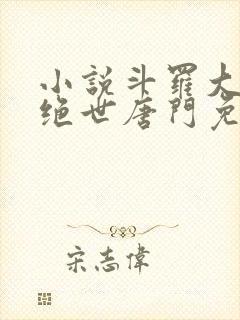 小說斗羅大
绝世唐門免
宋志偉